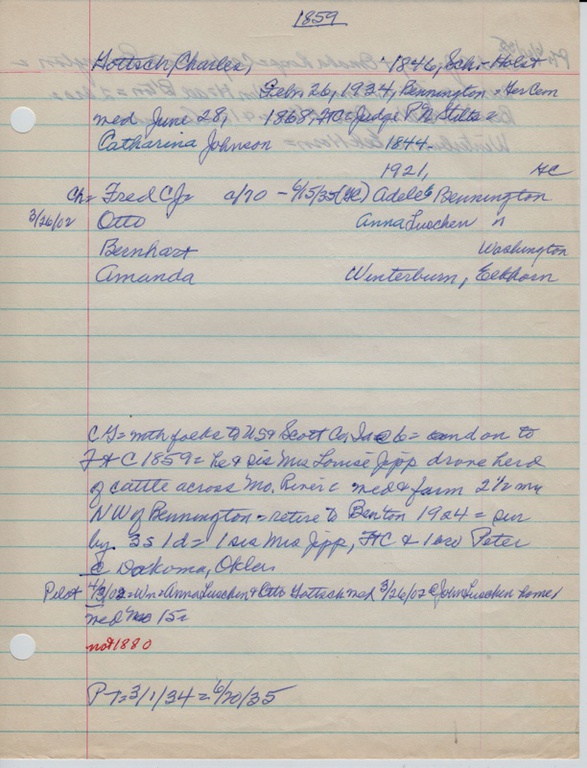 1859
Hottsch, Charles, 1846, Sch-Holst
Feb. 26, 1934, Bennington = Her Cem
med June 28, 1868, HC = Judge P.G. Stilts =
Catharina Johnson 1844-
1921, HC
Ch = Fred C Jr a/70 - 6/5/35 (HC) Adele Bennington
3/26/02 Otto Anna Luschen "
Bernhart Washington
Amanda Winterburn, Elkhorn
CG = with folks to USA Scott Co, Ia @ 6 = and on to
HC 1859 = he & sis Mrs Louise Jipp drove herd
of cattle across Mo. River = med & farm 2 1/2 mi
NW of Bennington = retire to Benton 1924 = sur
by 3s 1d = 1 sis Mrs Jipp, HC & 1 bro Peter
@ Dakoma, Okla.
Pilot 4/3/02 = Wn = Anna Luschen & Otto Hottsch med 3/26/02 @ John Luschen home,
med 15c
not 1880
PT = 3/1/34 = 6/20/35